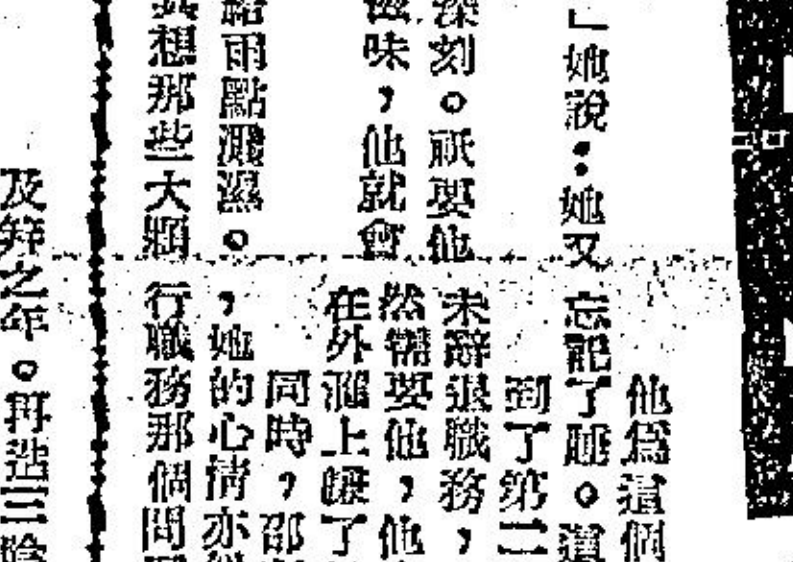 」她說：她又
深刻。祇要他
滋味，他就會
給雨點濺濕。
想那些大題
他爲這個
忘記了睡。這
到了第二
未辭退職務，
然需要他，他
在外灘上躱了
同時，邵
，她的心情亦
行職務那個問
及笄之年。再